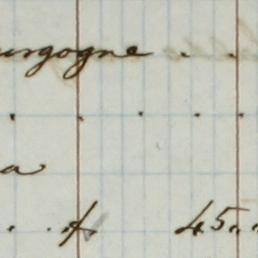 urgogne . .
. . . . .
a
. . f. 45..